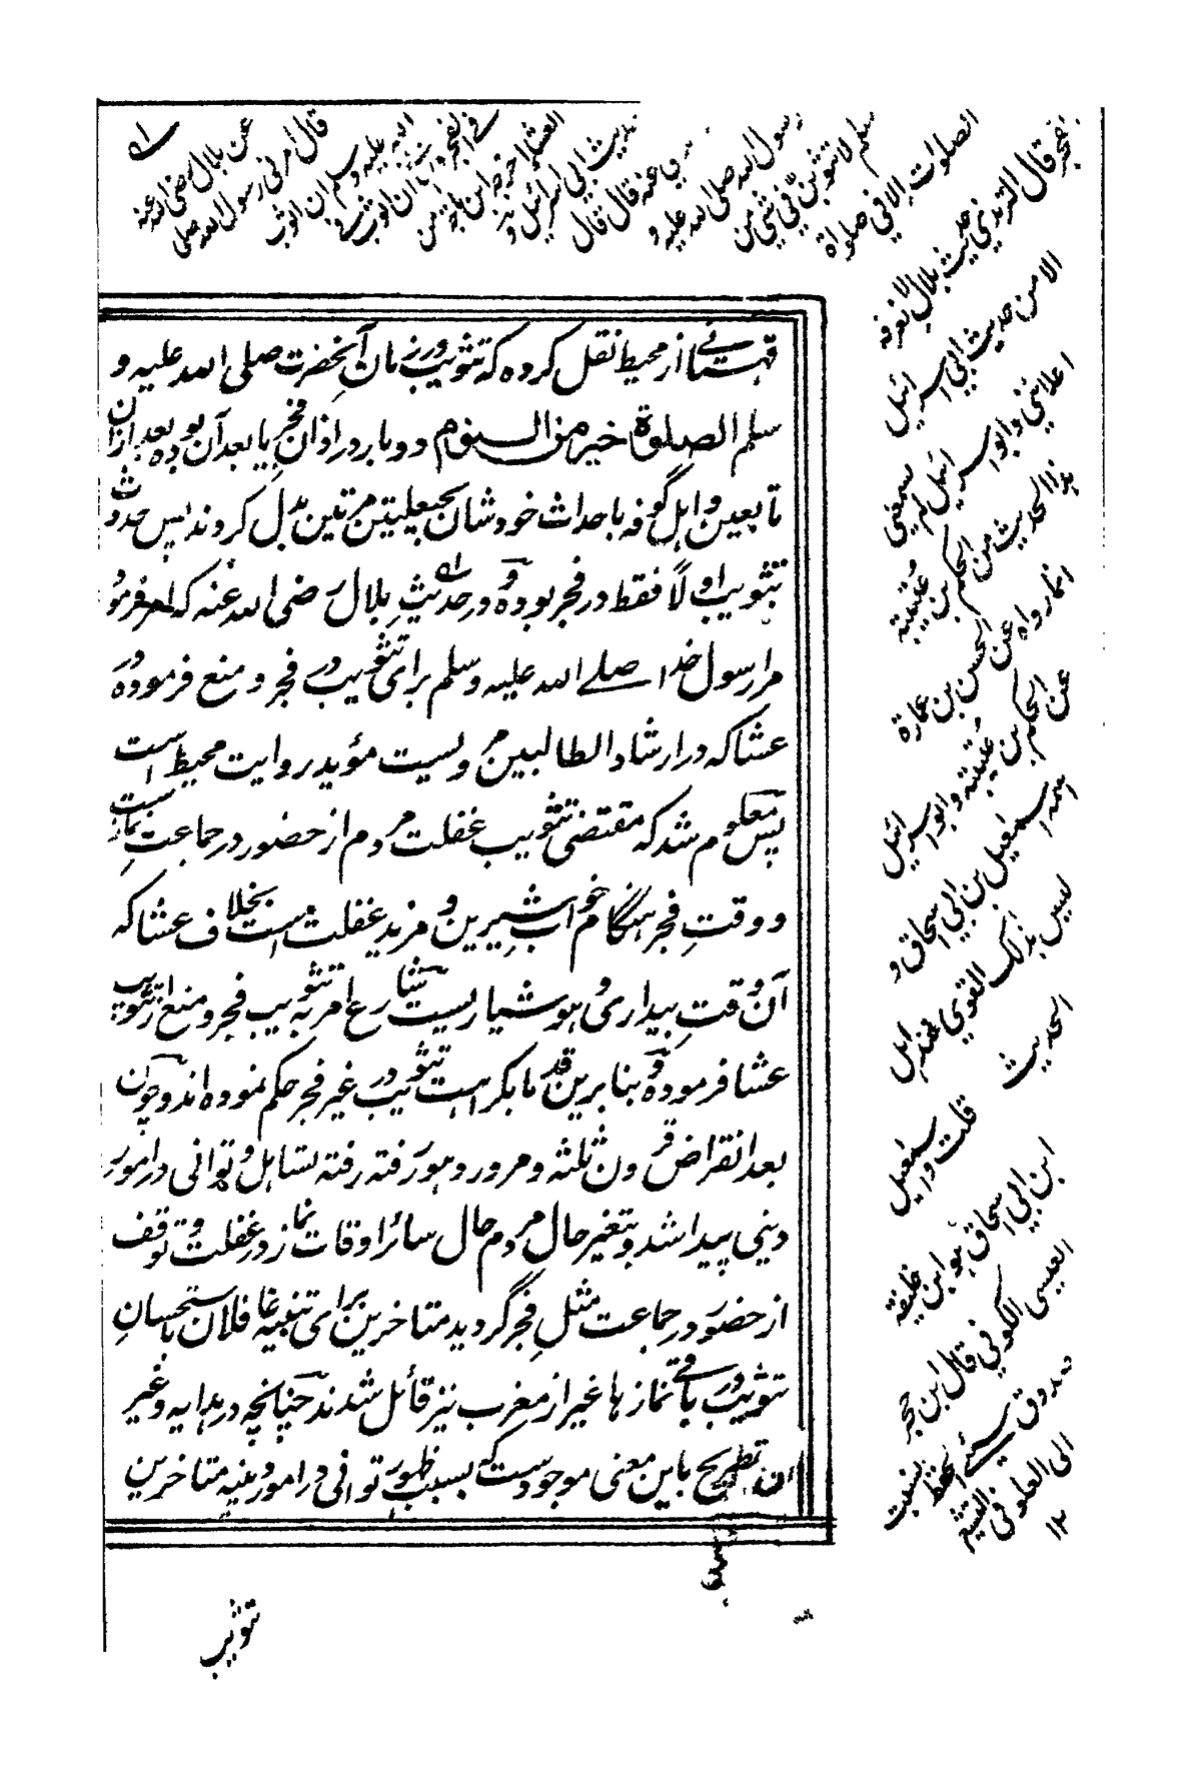 قهستانی از محیط نقل کرده که تثویب در زمان آنحضرت صلی الله علیه و
سلم الصلوة خیر من النوم دو بار در اذان فجر یا بعد آن بوده بعد ازان
تابعین و اهل کوفه باحداث خودشان بحیعلتین مرتین بدل کردند پس حدوث
تثویب اولًا فقط در فجر بوده و در حدیثِ بلال رضی الله عنه که امر فرمود
مرا رسول خدا صلے الله علیه وسلم برای تثویب در فجر و منع فرموده در
عشا که در ارشاد الطالبین مرویست مؤید روایت محیط است
پس معلوم شد که مقتضی تثویب غفلت مردم از حضور در جماعتِ نماز ست
و وقتِ فجر هنگام خوابِ شیرین و مزید غفلت است بخلاف عشا که
آن وقتِ بیداری و هوشیاریست شارع امر به تثویب فجر و منع از تثویب
عشا فرموده و بنا برین قدما بکراهت تثویب در غیر فجر حکم نموده اند و چون
بعد انقراض قرون ثلثه و مرور دهور رفته رفته تساهل و توانی در امور
دینی پیدا شد و بتغیر حال مردم حال سائر اوقات نماز در غفلت و توقف
از حضور در جماعت مثلِ فجر گردید متاخرین برای تنبیه غافلان باستحسانِ
تثویب در باقے نمازها غیر از مغرب نیز قائل شدند چنانچه در هدایه و غیر
آن تصریح باین معنی موجودست که بسببِ ظهور توانی در امور دینیه متاخرین
تثویب
عن بلال رضی الله عنه
قال امرنی رسول الله صلی
الله علیه وسلم ان اثوب
فے الفجر و نهانی ان اثوب فے
العشاء اخرجه ابن ماجه من
حدیث ابی اسرائیل
عنه قال قال
رسول الله صلی الله علیه و
سلم لا تثوبن فی شئ من
الصلوات الا فی صلواة
الفجر قال الترمذی حدیث بلال لا نعرفه
الا من حدیث ابی اسرائیل
الملائی و ابو اسرائیل لم یسمع
هذا الحدیث من الحکم بن عتیبة
انما رواه عن الحسن بن عمارة
عن الحکم بن عتیبة و ابو اسرائیل
اسمه اسمعیل بن ابی اسحاق و
لیس بذلک القوی عند اهل
الحدیث
قلت و اسمعیل
ابن ابی اسحاق هو ابن خلیفة
العبسی الکوفی قال ابن حجر
صدوق سیئ الحفظ نسب
الی الغلو فی التشیع
۱۲